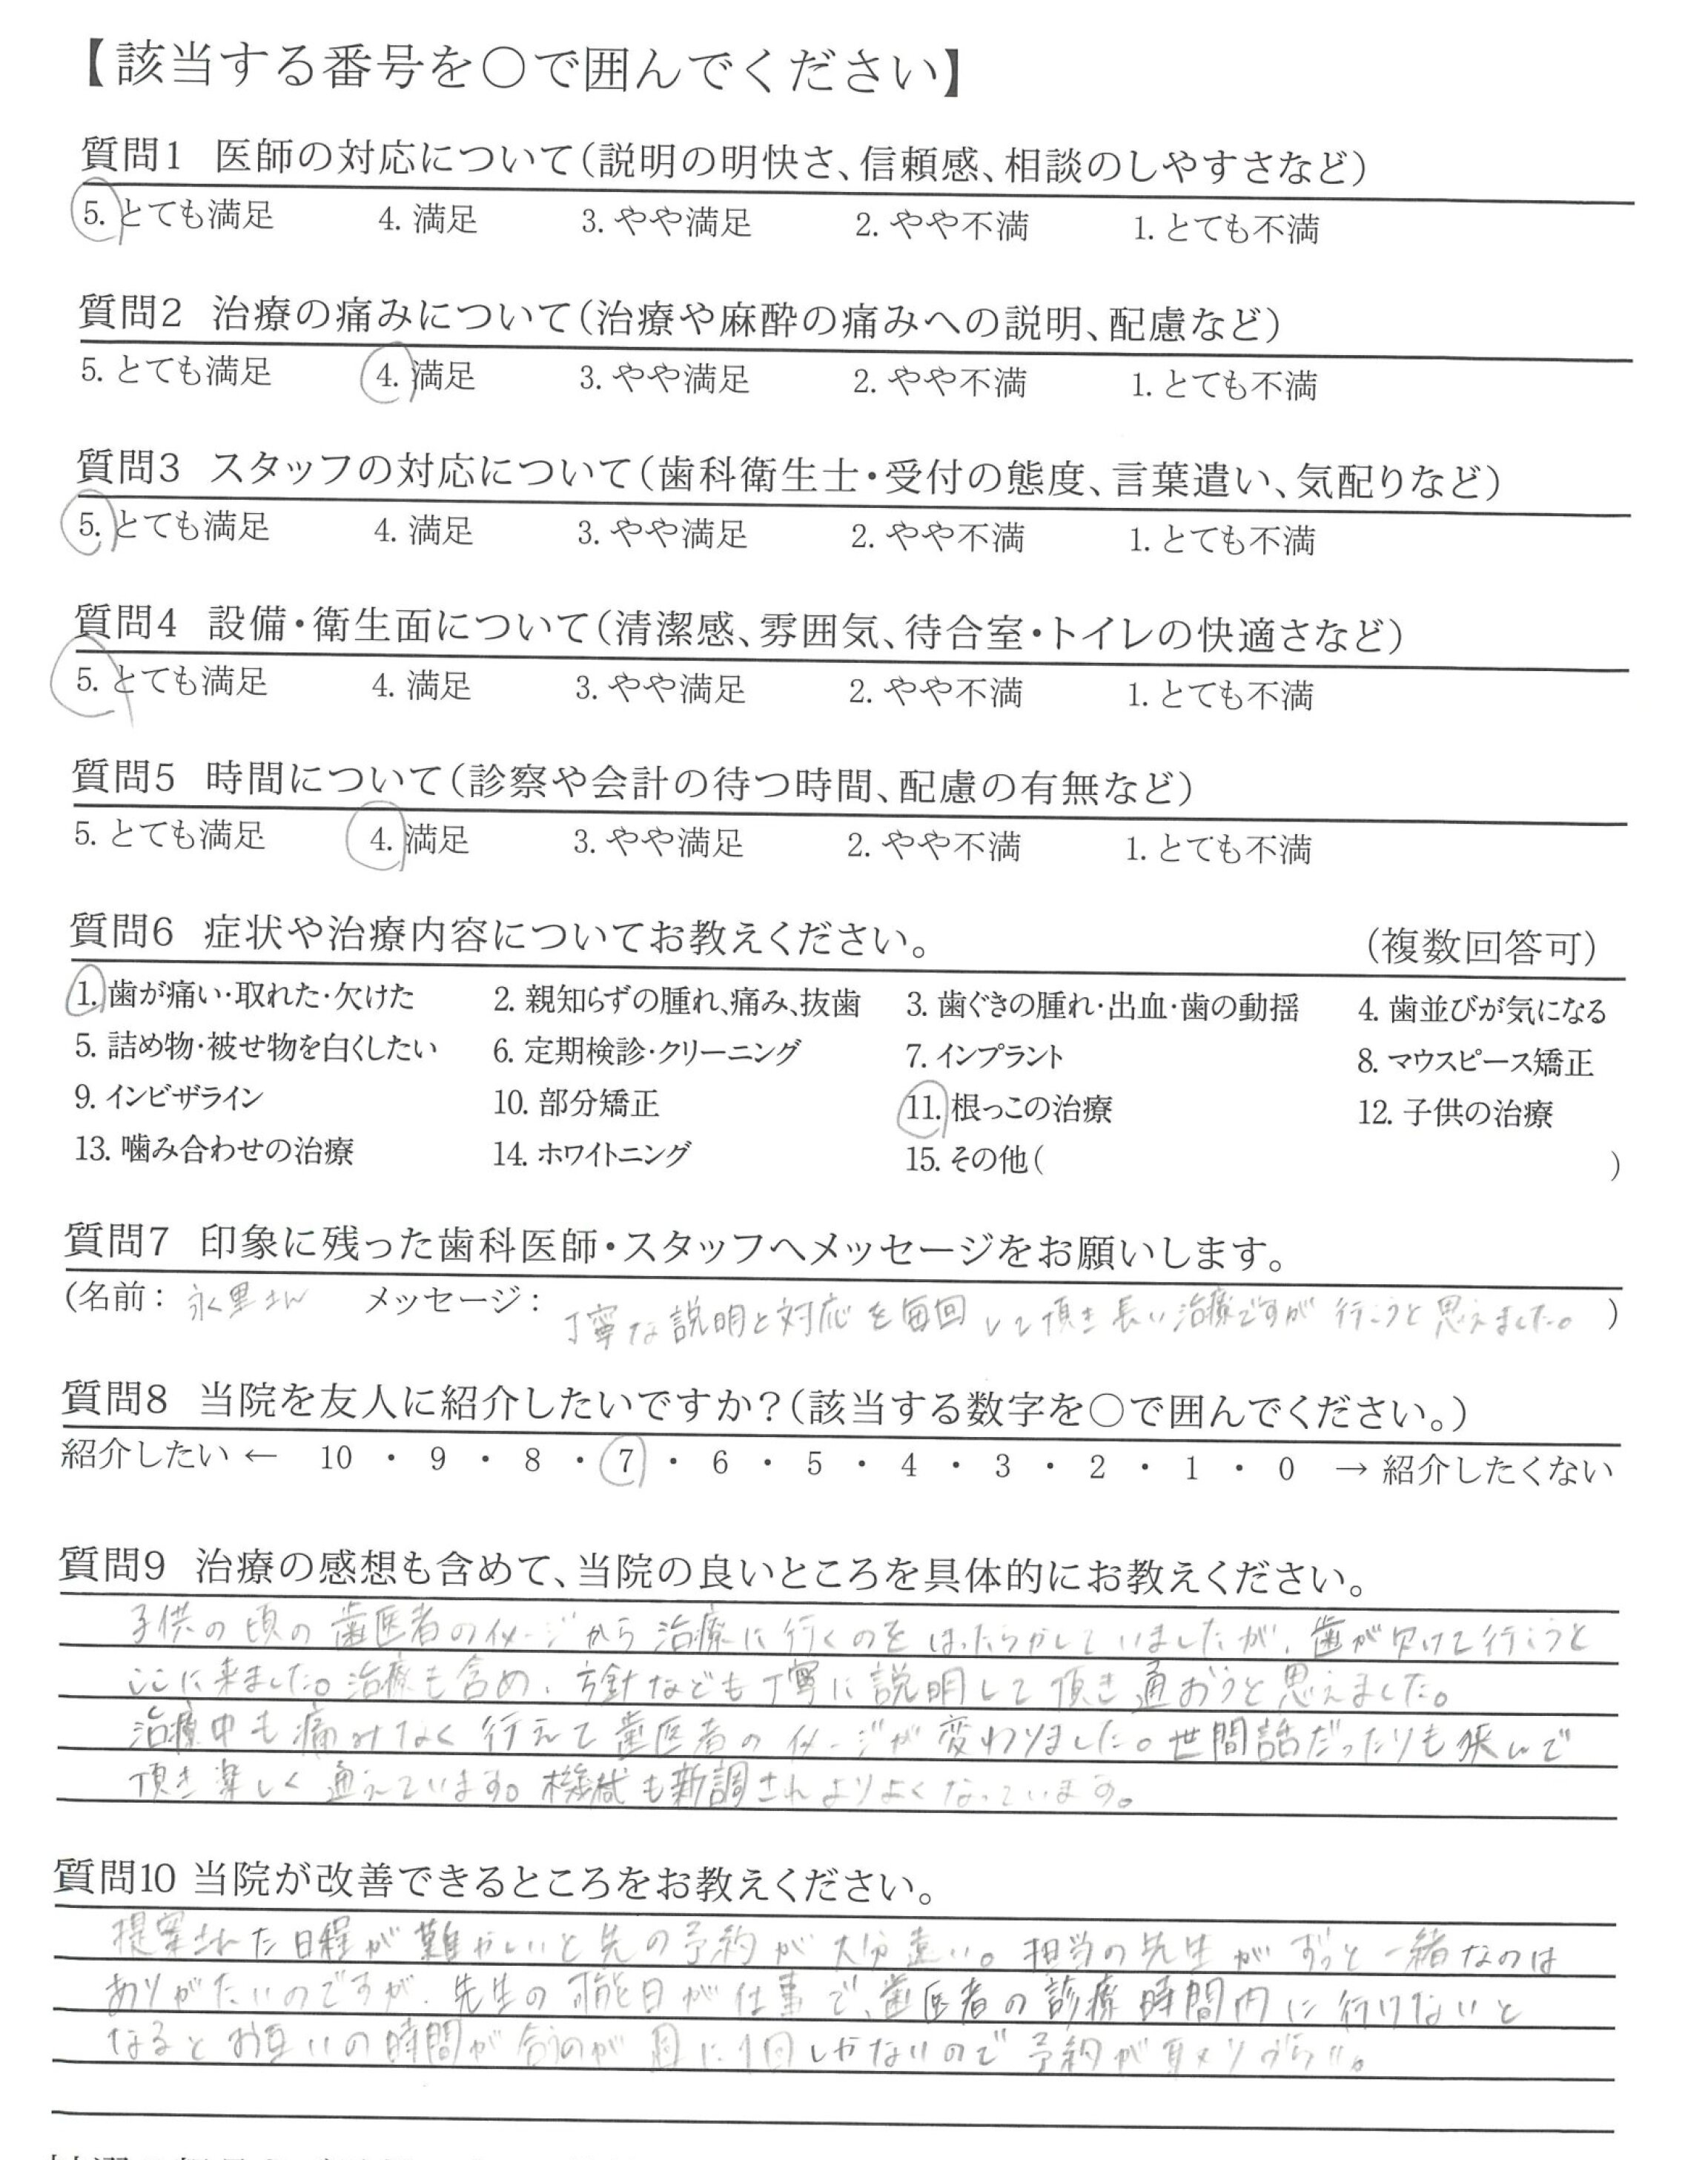 【該当する番号を○で囲んでください】
質問1 医師の対応について(説明の明快さ、信頼感、相談のしやすさなど)
5. とても満足 4. 満足 3. やや満足 2. やや不満 1. とても不満
質問2 治療の痛みについて(治療や麻酔の痛みへの説明、配慮など)
5. とても満足 4. 満足 3. やや満足 2. やや不満 1. とても不満
質問3 スタッフの対応について(歯科衛生士・受付の態度、言葉遣い、気配りなど)
5. とても満足 4. 満足 3. やや満足 2. やや不満 1. とても不満
質問4 設備・衛生面について(清潔感、雰囲気、待合室・トイレの快適さなど)
5. とても満足 4. 満足 3. やや満足 2. やや不満 1. とても不満
質問5 時間について(診察や会計の待つ時間、配慮の有無など)
5. とても満足 4. 満足 3. やや満足 2. やや不満 1. とても不満
質問6 症状や治療内容についてお教えください。 (複数回答可)
1. 歯が痛い・取れた・欠けた 2. 親知らずの腫れ、痛み、抜歯 3. 歯ぐきの腫れ・出血・歯の動揺 4. 歯並びが気になる
5. 詰め物・被せ物を白くしたい 6. 定期検診・クリーニング 7. インプラント 8. マウスピース矯正
9. インビザライン 10. 部分矯正 11. 根っこの治療 12. 子供の治療
13. 噛み合わせの治療 14. ホワイトニング 15. その他( )
質問7 印象に残った歯科医師・スタッフへメッセージをお願いします。
(名前: 永里さん メッセージ: 丁寧な説明と対応を毎回して頂き長い治療ですが行こうと思えました。 )
質問8 当院を友人に紹介したいですか?(該当する数字を○で囲んでください。)
紹介したい ← 10 ・ 9 ・ 8 ・ 7 ・ 6 ・ 5 ・ 4 ・ 3 ・ 2 ・ 1 ・ 0 → 紹介したくない
質問9 治療の感想も含めて、当院の良いところを具体的にお教えください。
子供の頃の歯医者のイメージから治療に行くのをほったらかしていましたが、歯が欠けて行こうと
ここに来ました。治療も含め、方針なども丁寧に説明して頂き通おうと思えました。
治療中も痛みなく行えて歯医者のイメージが変わりました。世間話だったりも挟んで
頂き楽しく通えています。機械も新調されよりよくなっています。
質問10 当院が改善できるところをお教えください。
提案された日程が難かしいと先の予約が大分遠い。担当の先生がずっと一緒なのは
ありがたいのですが、先生の可能日が仕事で、歯医者の診療時間内に行けないと
なるとお互いの時間が合うのが月に1回しかないので予約が取りづらい。